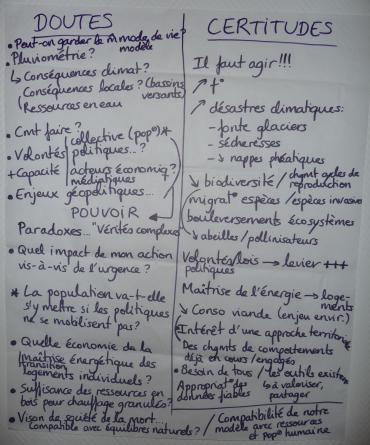 DOUTES
• Peut-on garder le m̂ mode de vie?
modèle
• Pluviométrie?
↳ Conséquences climat?
Conséquences locales? (bassins
versants)
(Ressources en eau
• Cmt faire?
collective (pop°)*
• Volontés politiques...?
+ Capacité acteurs économiq?
médiatiques
• Enjeux géopolitiques...
POUVOIR
Paradoxes... "Vérités complexes
• Quel impact de mon action
vis-à-vis de l'urgence?
* La population va-t-elle
s'y mettre si les politiques
ne se mobilisent pas?
• Quelle économie de la
maîtrise énergétique des
transition
logements individuels?
• Suffisance des ressources en
bois pour chauffage granulés?
• Vison de société de la mort...
compatible avec équilibres naturels?
CERTITUDES
Il faut agir!!!
↗ t°
↗ désastres climatiques:
- fonte glaciers
- sécheresses
- ↘ nappes phréatiques
↘ biodiversité / chgmt cycles de
reproduction
migrat° espèces / espèces invasives
bouleversements écosystèmes
↘ abeilles / pollinisateurs
Volontés/lois → levier +++
politiques
Maîtrise de l'énergie → loge-
ments
↘ Conso viande (enjeu envir.)
Intérêt d'une approche territoire
Des chgmts de comportements
déjà en cours / engagés
• Besoin de tous / les outils existent
↳ à valoriser,
partager
Appropriat° des
données fiables
/ Compatibilité de notre
modèle avec ressources
et pop° humaine